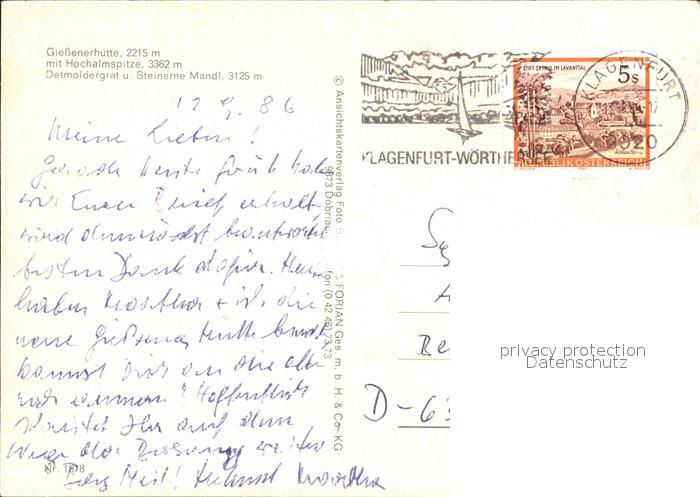 Gießenerhütte, 2215 m
mit Hochalmspitze, 3362 m
Detmoldergrat u. Steinerne Mandl, 3125 m
12. 9. 86
Meine Lieben!
Gerade heute früh haben
wir Euren Brief erhalt.
wird demnächst beantwortet
besten Dank dafür. Heute
haben Martha + ich die
neue Gießener Hütte
kannst Dich an die alte
noch erinnern? Hoffentlich
Ihr auf dem
Wege der
Berg Heil! Helmut Martha
Nr. 1878
© Ansichtskartenverlag Foto
FORJAN Ges. m. b. H. & Co. KG
9873 Döbriac
fon (0 42 46) 73 73
KLAGENFURT-WÖRTHERSEE
STIFT ST. PAUL IM LAVANTTAL
5 S
REPUBLIK ÖSTERREICH
KLAGENFURT
9020
Be
D-6
privacy protection
Datenschutz